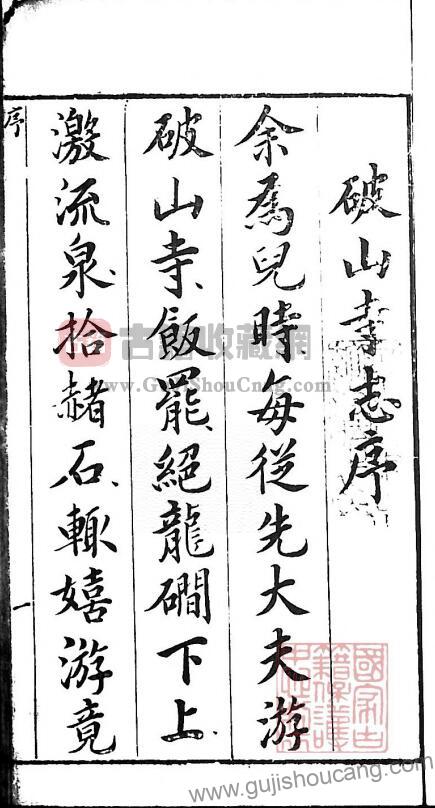 破山寺志序
余爲兒時每從先大夫游
破山寺飯罷絕龍磵下上
激流泉拾赭石輒嬉游竟
序
一
古籍收藏網
www.GuJiShouCang.com
國家古籍保護
www.gujishoucang.com